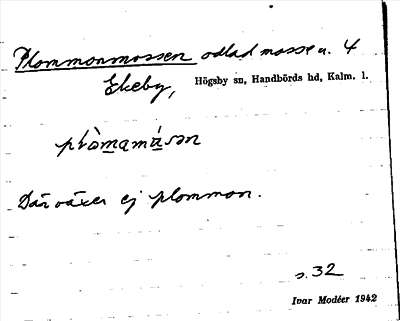 Plommonmossen odlad mosse u. 4
Ekeby, Högsby sn, Handbörds hd, Kalm. l.
plòmamásən
Där växer ej plommon.
s. 32
Ivar Modéer 1942